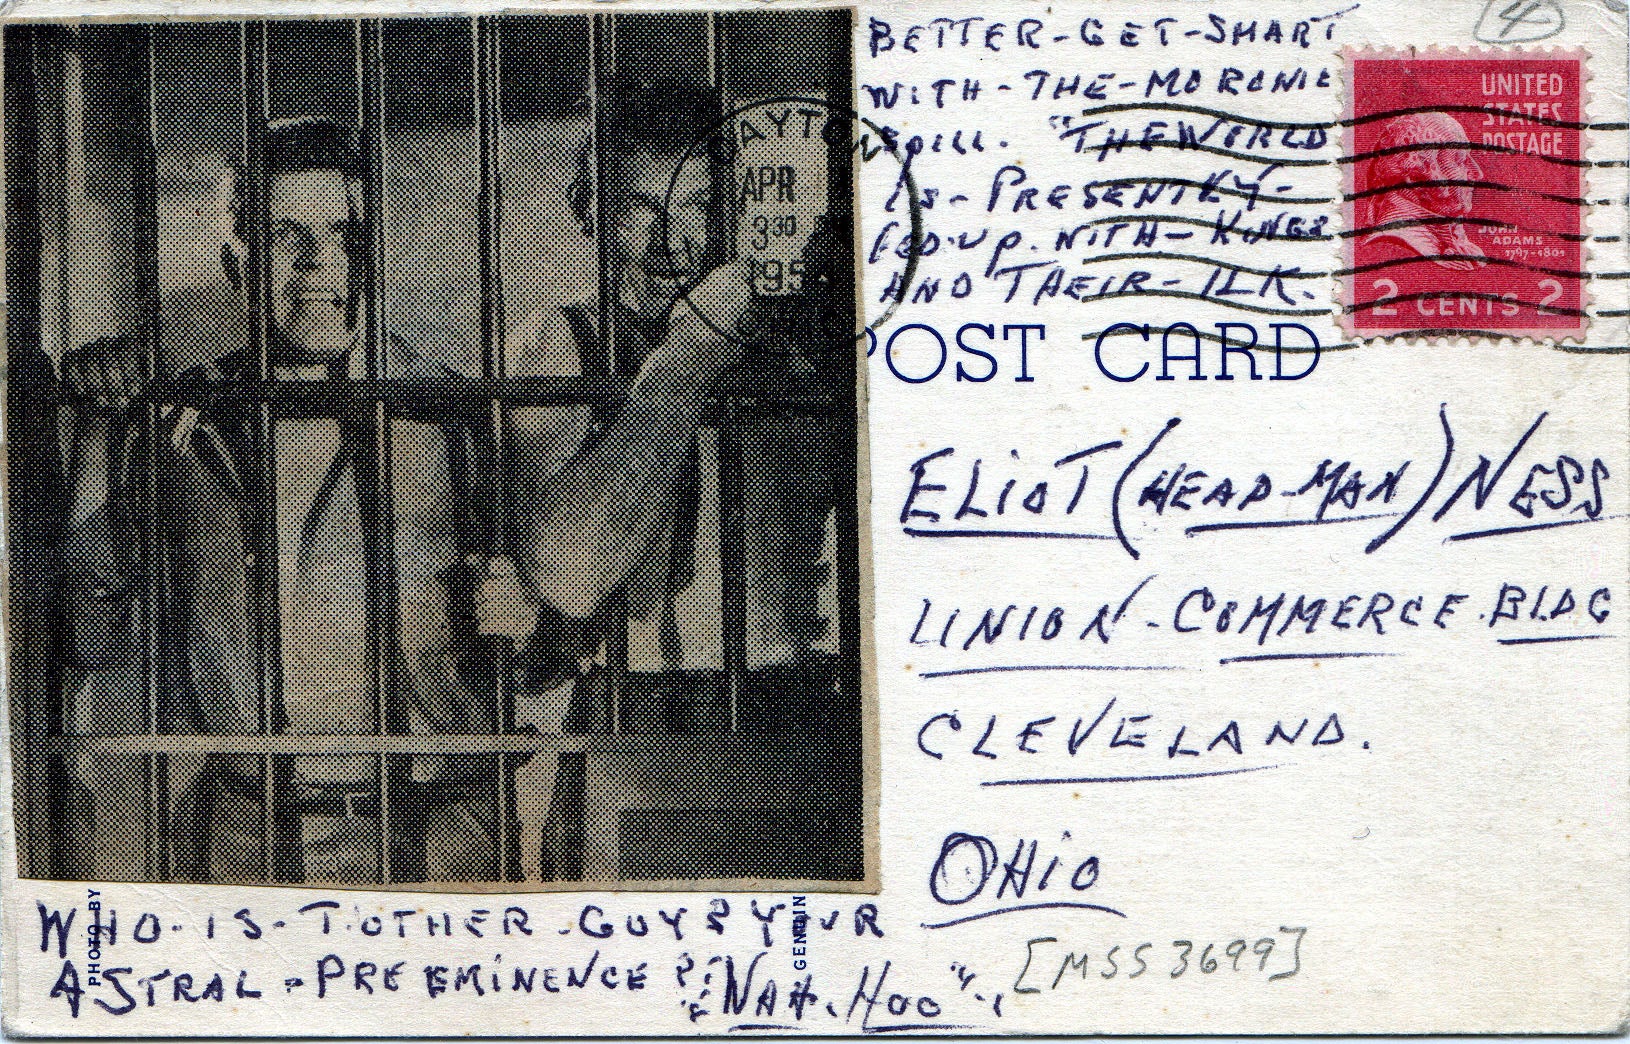 BETTER-GET-SMART
WITH-THE-MORONIC
SPILL. "THE WORLD
IS-PRESENTLY-
FED-UP. WITH-KINGS
AND THEIR-ILK.
4
UNITED
STATES
POSTAGE
JOHN
ADAMS
1797-1801
2 CENTS 2
DAYTO
APR
3 30
195
POST CARD
ELIOT (HEAD-MAN) NESS
UNION-COMMERCE.BLDG
CLEVELAND.
OHIO
[MSS 3699]
PHOTO BY
GENUIN
WHO-IS-T'OTHER-GUY? YOUR
ASTRAL-PREEMINENCE?
"NAH.HOO".